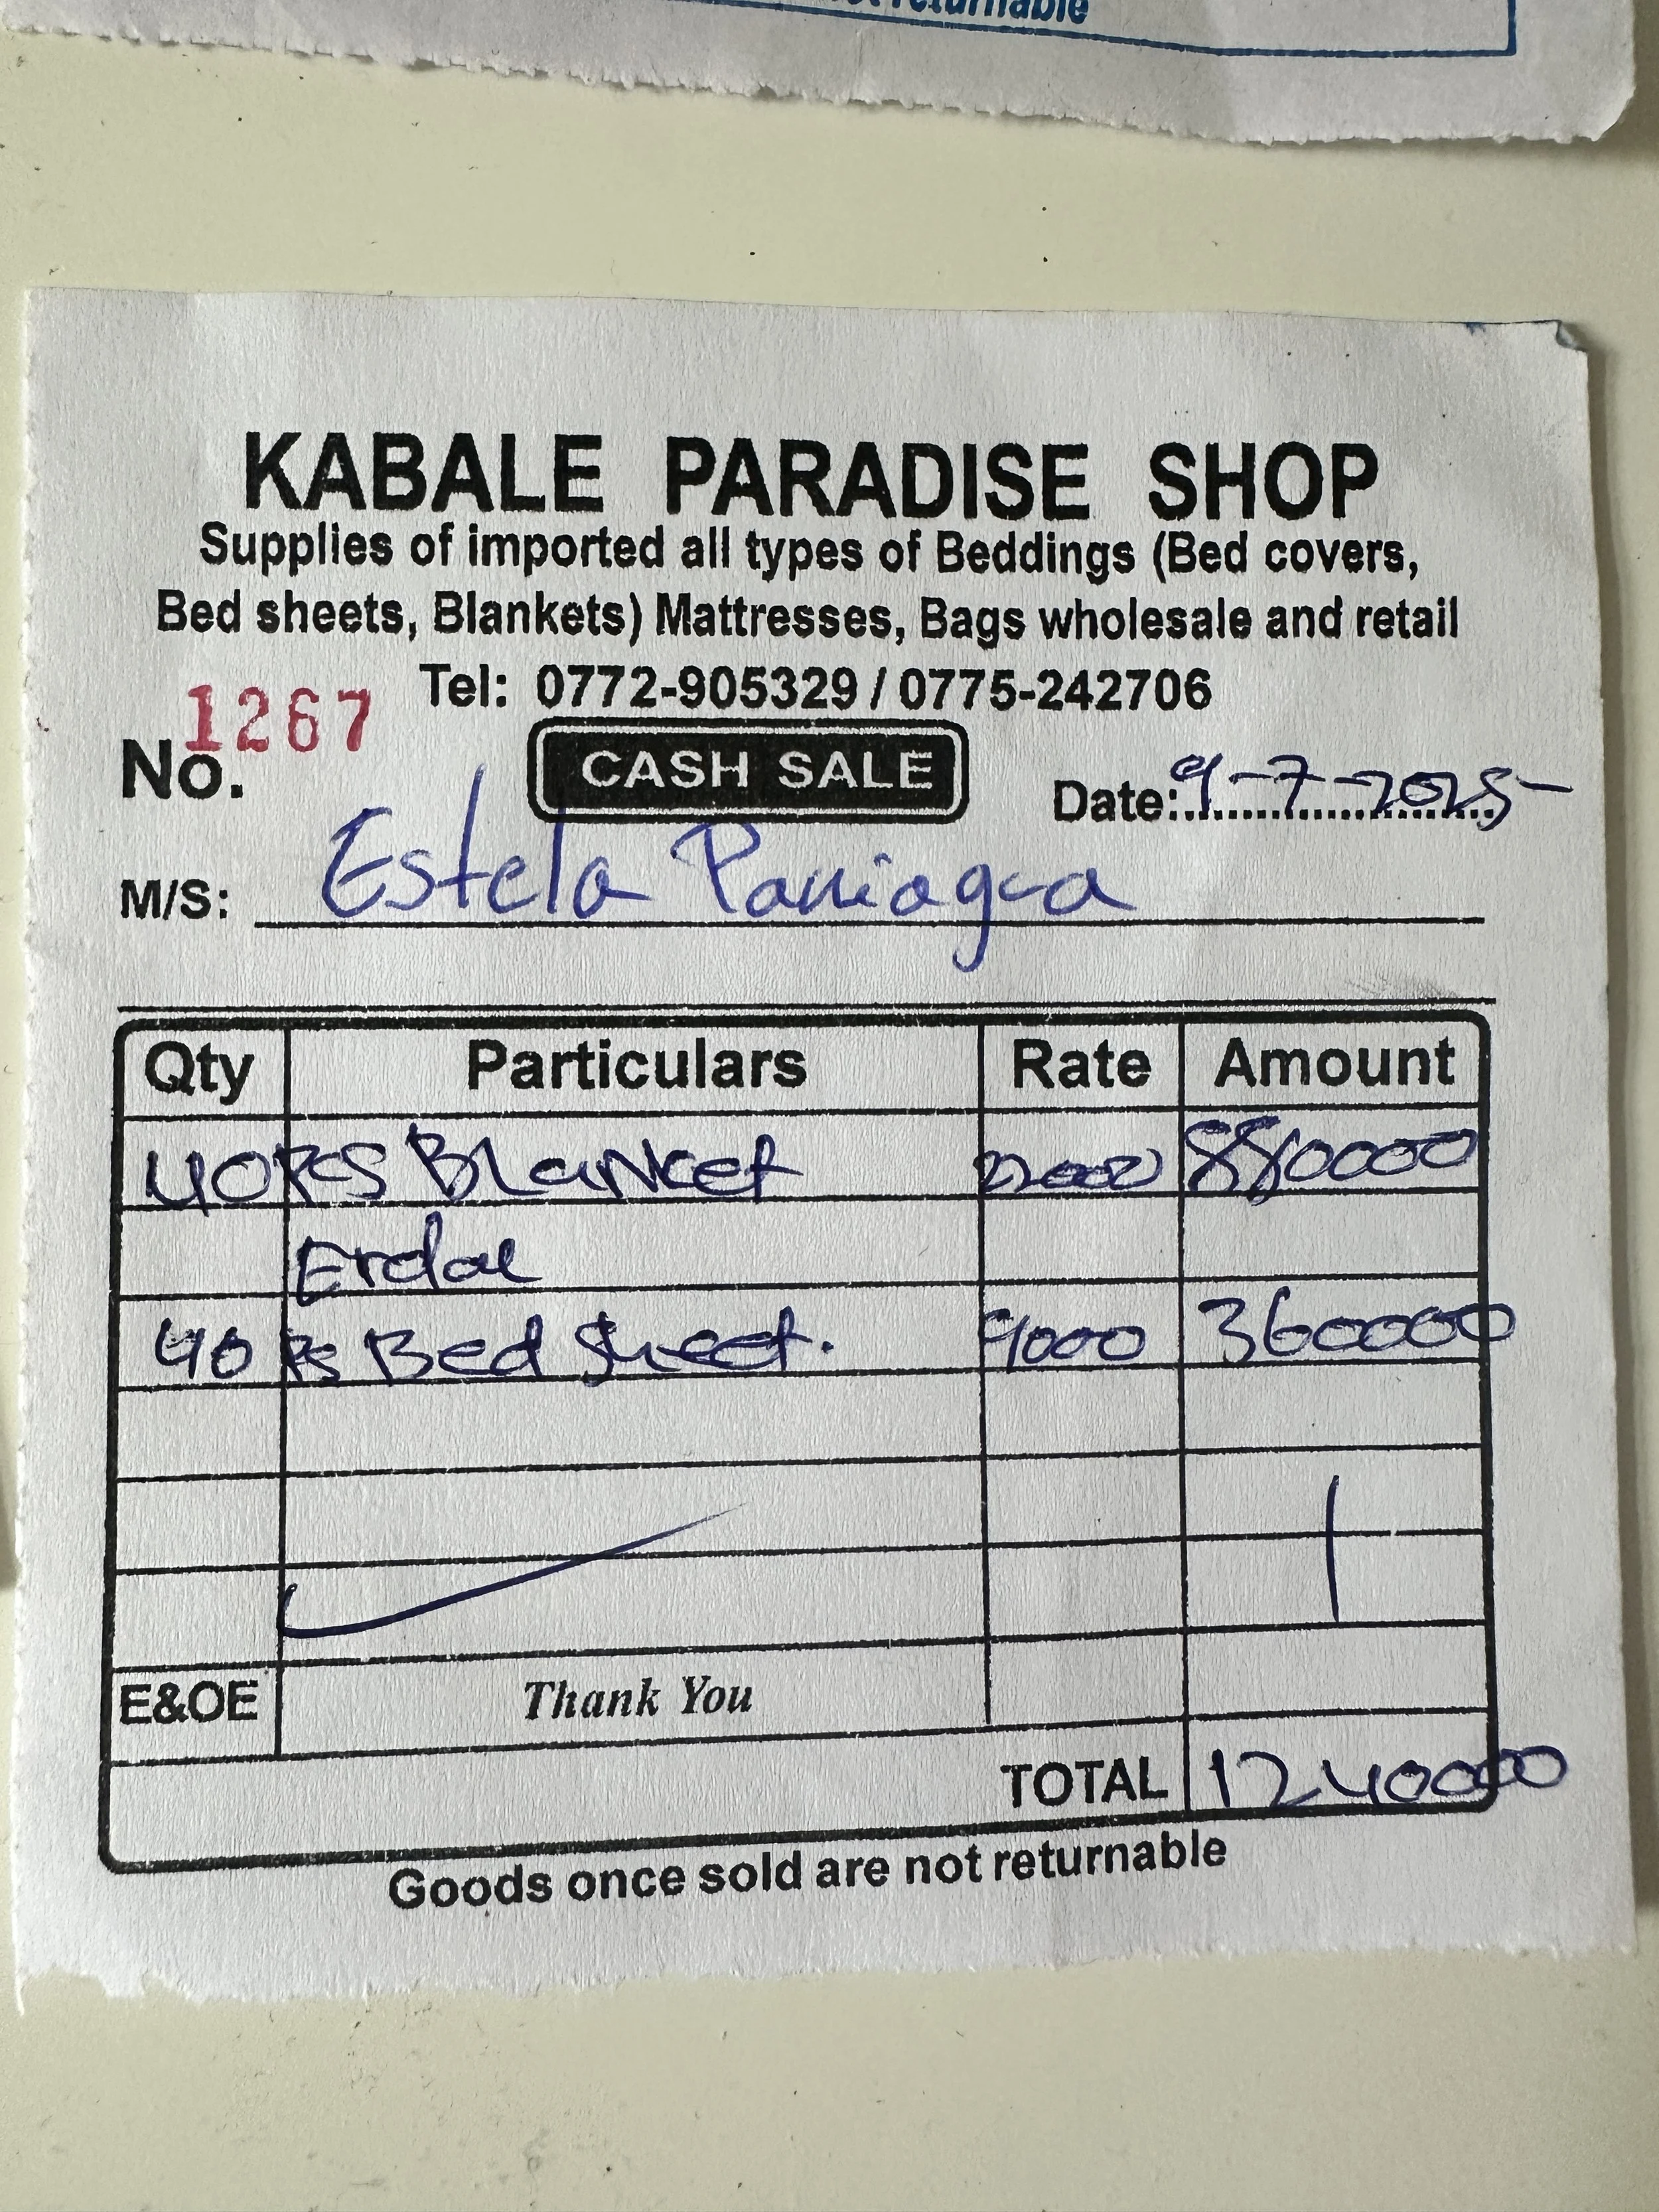 returnable
KABALE PARADISE SHOP
Supplies of imported all types of Beddings (Bed covers,
Bed sheets, Blankets) Mattresses, Bags wholesale and retail
Tel: 0772-905329 / 0775-242706
No. 1267
CASH SALE
Date: 9-7-2025-
M/S: Estela Paniagua
Qty Particulars Rate Amount
40 PCS Blancket 22000 880000
Erdal
40 PS Bed Sheet. 9000 360000
E&OE Thank You
TOTAL 1240000
Goods once sold are not returnable